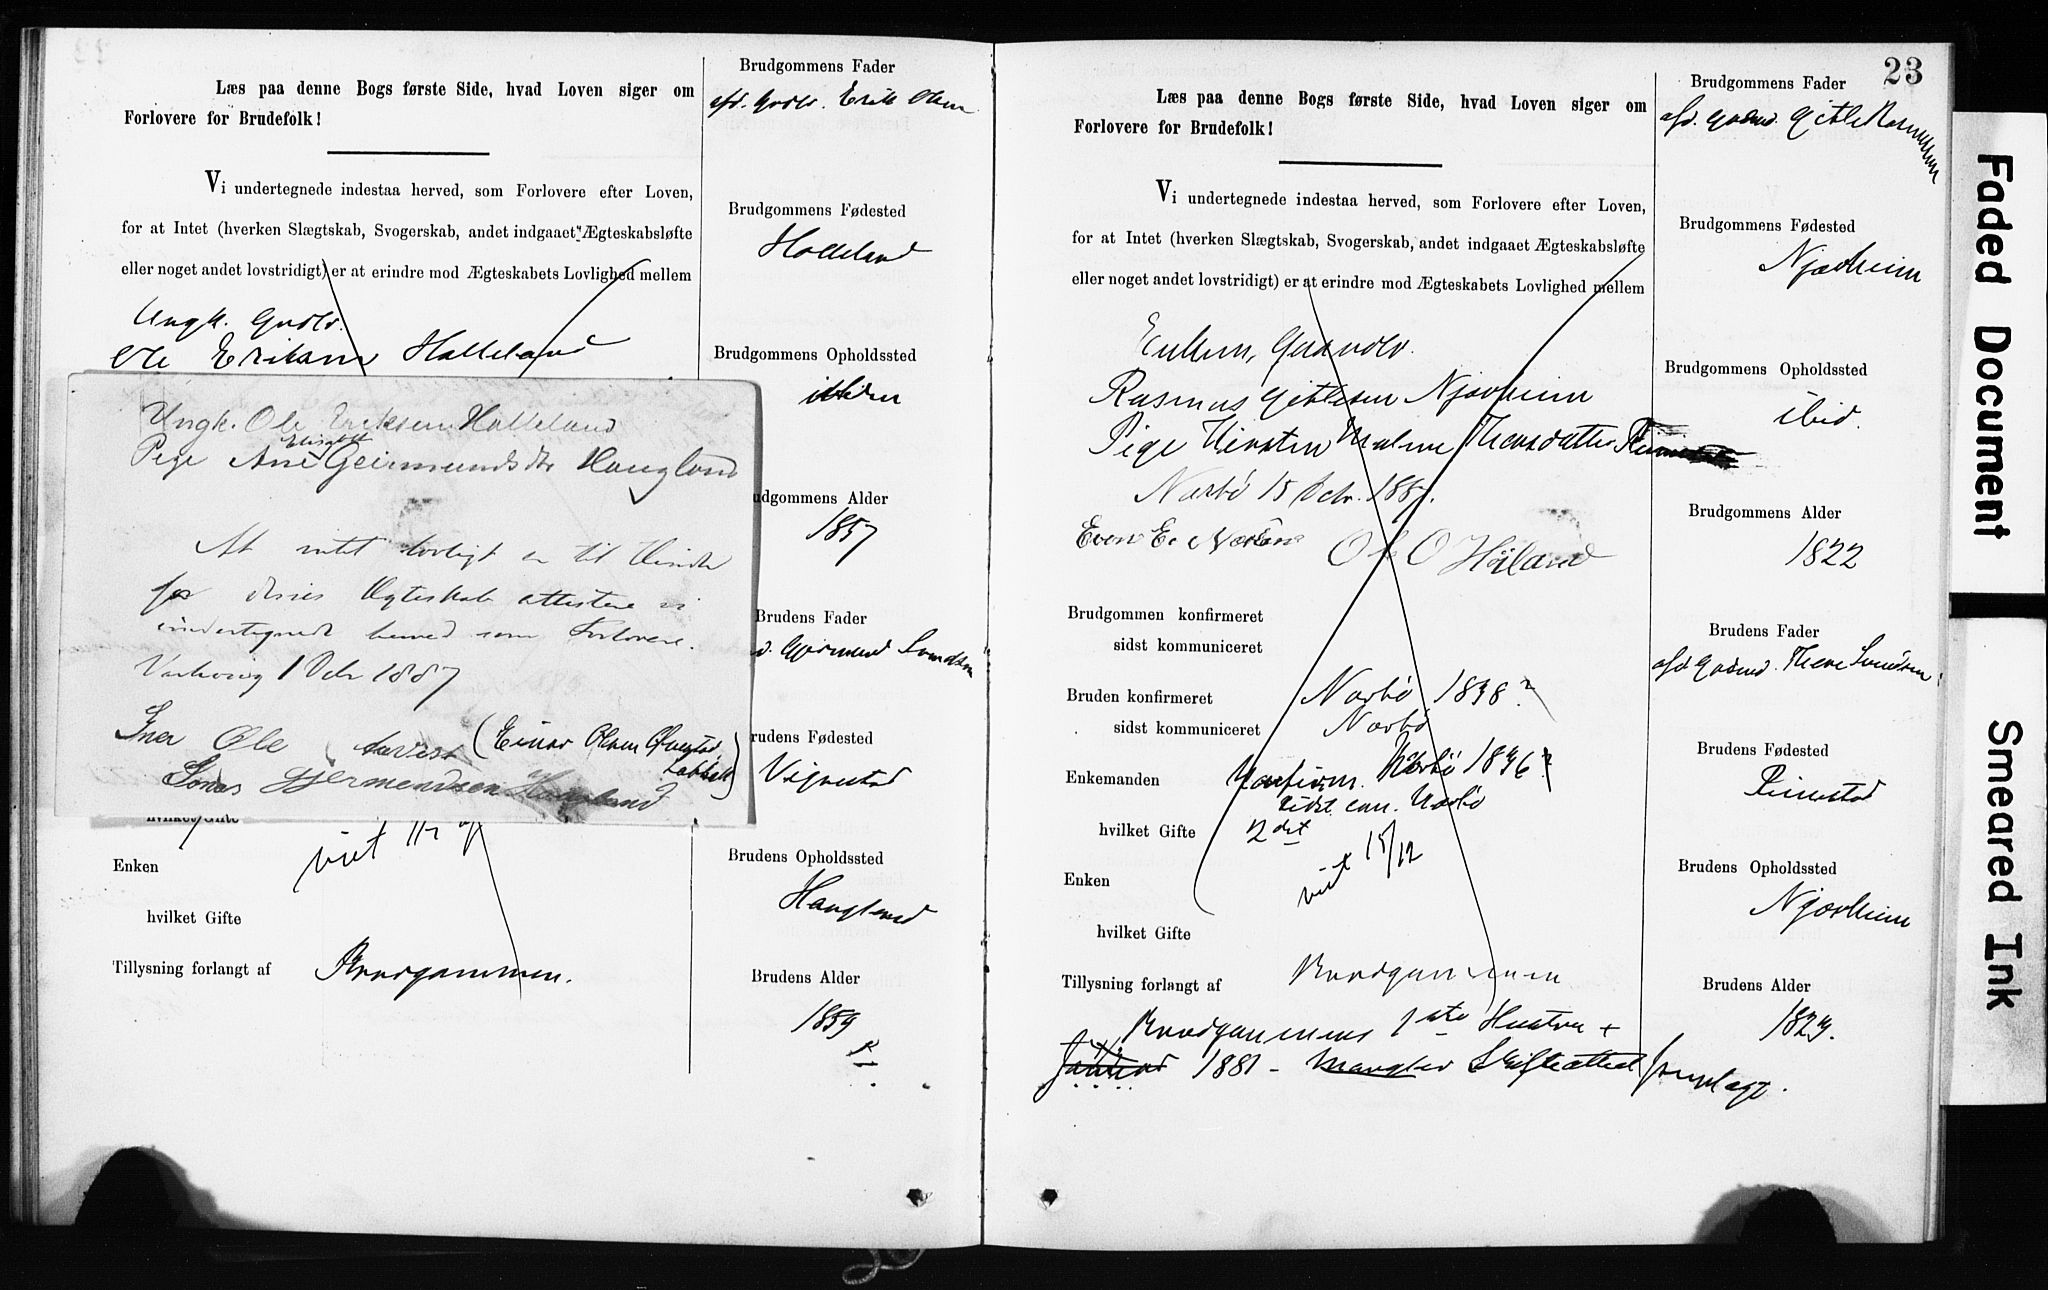 Læs paa denne Bogs første Side, hvad Loven siger om
Forlovere for Brudefolk!
Vi undertegnede indestaa herved, som Forlovere efter Loven,
for at Intet (hverken Slægtskab, Svogerskab, andet indgaaet Ægteskabsløfte
eller noget andet lovstridigt) er at erindre mod Ægteskabets Lovlighed mellem
Ungk. Grdbr.
Ole Eriksen Holleland
Ungk. Ole Eriksen Holleland
Elisabeth
Pige Ane Geirmundsdtr Haugland
At intet lovligt er til Hinder
for deres Ægteskab attestere vi
undertegnede herved som Forlovere.
Varhoug 1 Octr 1887
Iver Ole Aavest (Einar Olsen Øvestad
Jonas Gjermendsen Haugland
hvilket Gifte
Enken
viet
hvilket Gifte
Tillysning forlangt af Brudgommen.
Brudgommens Fader
afd. Grdbr. Erik Olsen
Brudgommens Fødested
Holleland
Brudgommens Opholdssted
ibidem
udgommens Alder
1857
Brudens Fader
d. Gjermund Svendsen
rudens Fødested
Vigrestad
Brudens Opholdssted
Haugland
Brudens Alder
1859
23
Læs paa denne Bogs første Side, hvad Loven siger om
Forlovere for Brudefolk!
Vi undertegnede indestaa herved, som Forlovere efter Loven,
for at Intet (hverken Slægtskab, Svogerskab, andet indgaaet Ægteskabsløfte
eller noget andet lovstridigt) er at erindre mod Ægteskabets Lovlighed mellem
Enkem. Gaardbr.
Rasmus Gitlesen Njærheim
Pige Kirsten Malene Thoresdatter
Nærbø 15 Octr. 1887.
Even E. Nærbø Ole O Høiland
Brudgommen konfirmeret
sidst kommuniceret
Bruden konfirmeret Nærbø 1838?
sidst kommuniceret Nærbø
Enkemanden Konfirm. Nærbø 1836?
sidst com. Nærbø
hvilket Gifte 2det
viet 15/12
Enken
hvilket Gifte
Tillysning forlangt af Brudgommen
Brudgommens 1ste Hustru +
1881 - mangler Skifteattest fremlagt.
Brudgommens Fader
afd. Gaardmd. Gitle Rasmussen
Brudgommens Fødested
Njærheim
Brudgommens Opholdssted
ibid.
Brudgommens Alder
1822
Brudens Fader
afd Gaardmd. Thore Svendsen
Brudens Fødested
Riimestad
Brudens Opholdssted
Njærheim
Brudens Alder
1823.
Faded Document
Smeared Ink